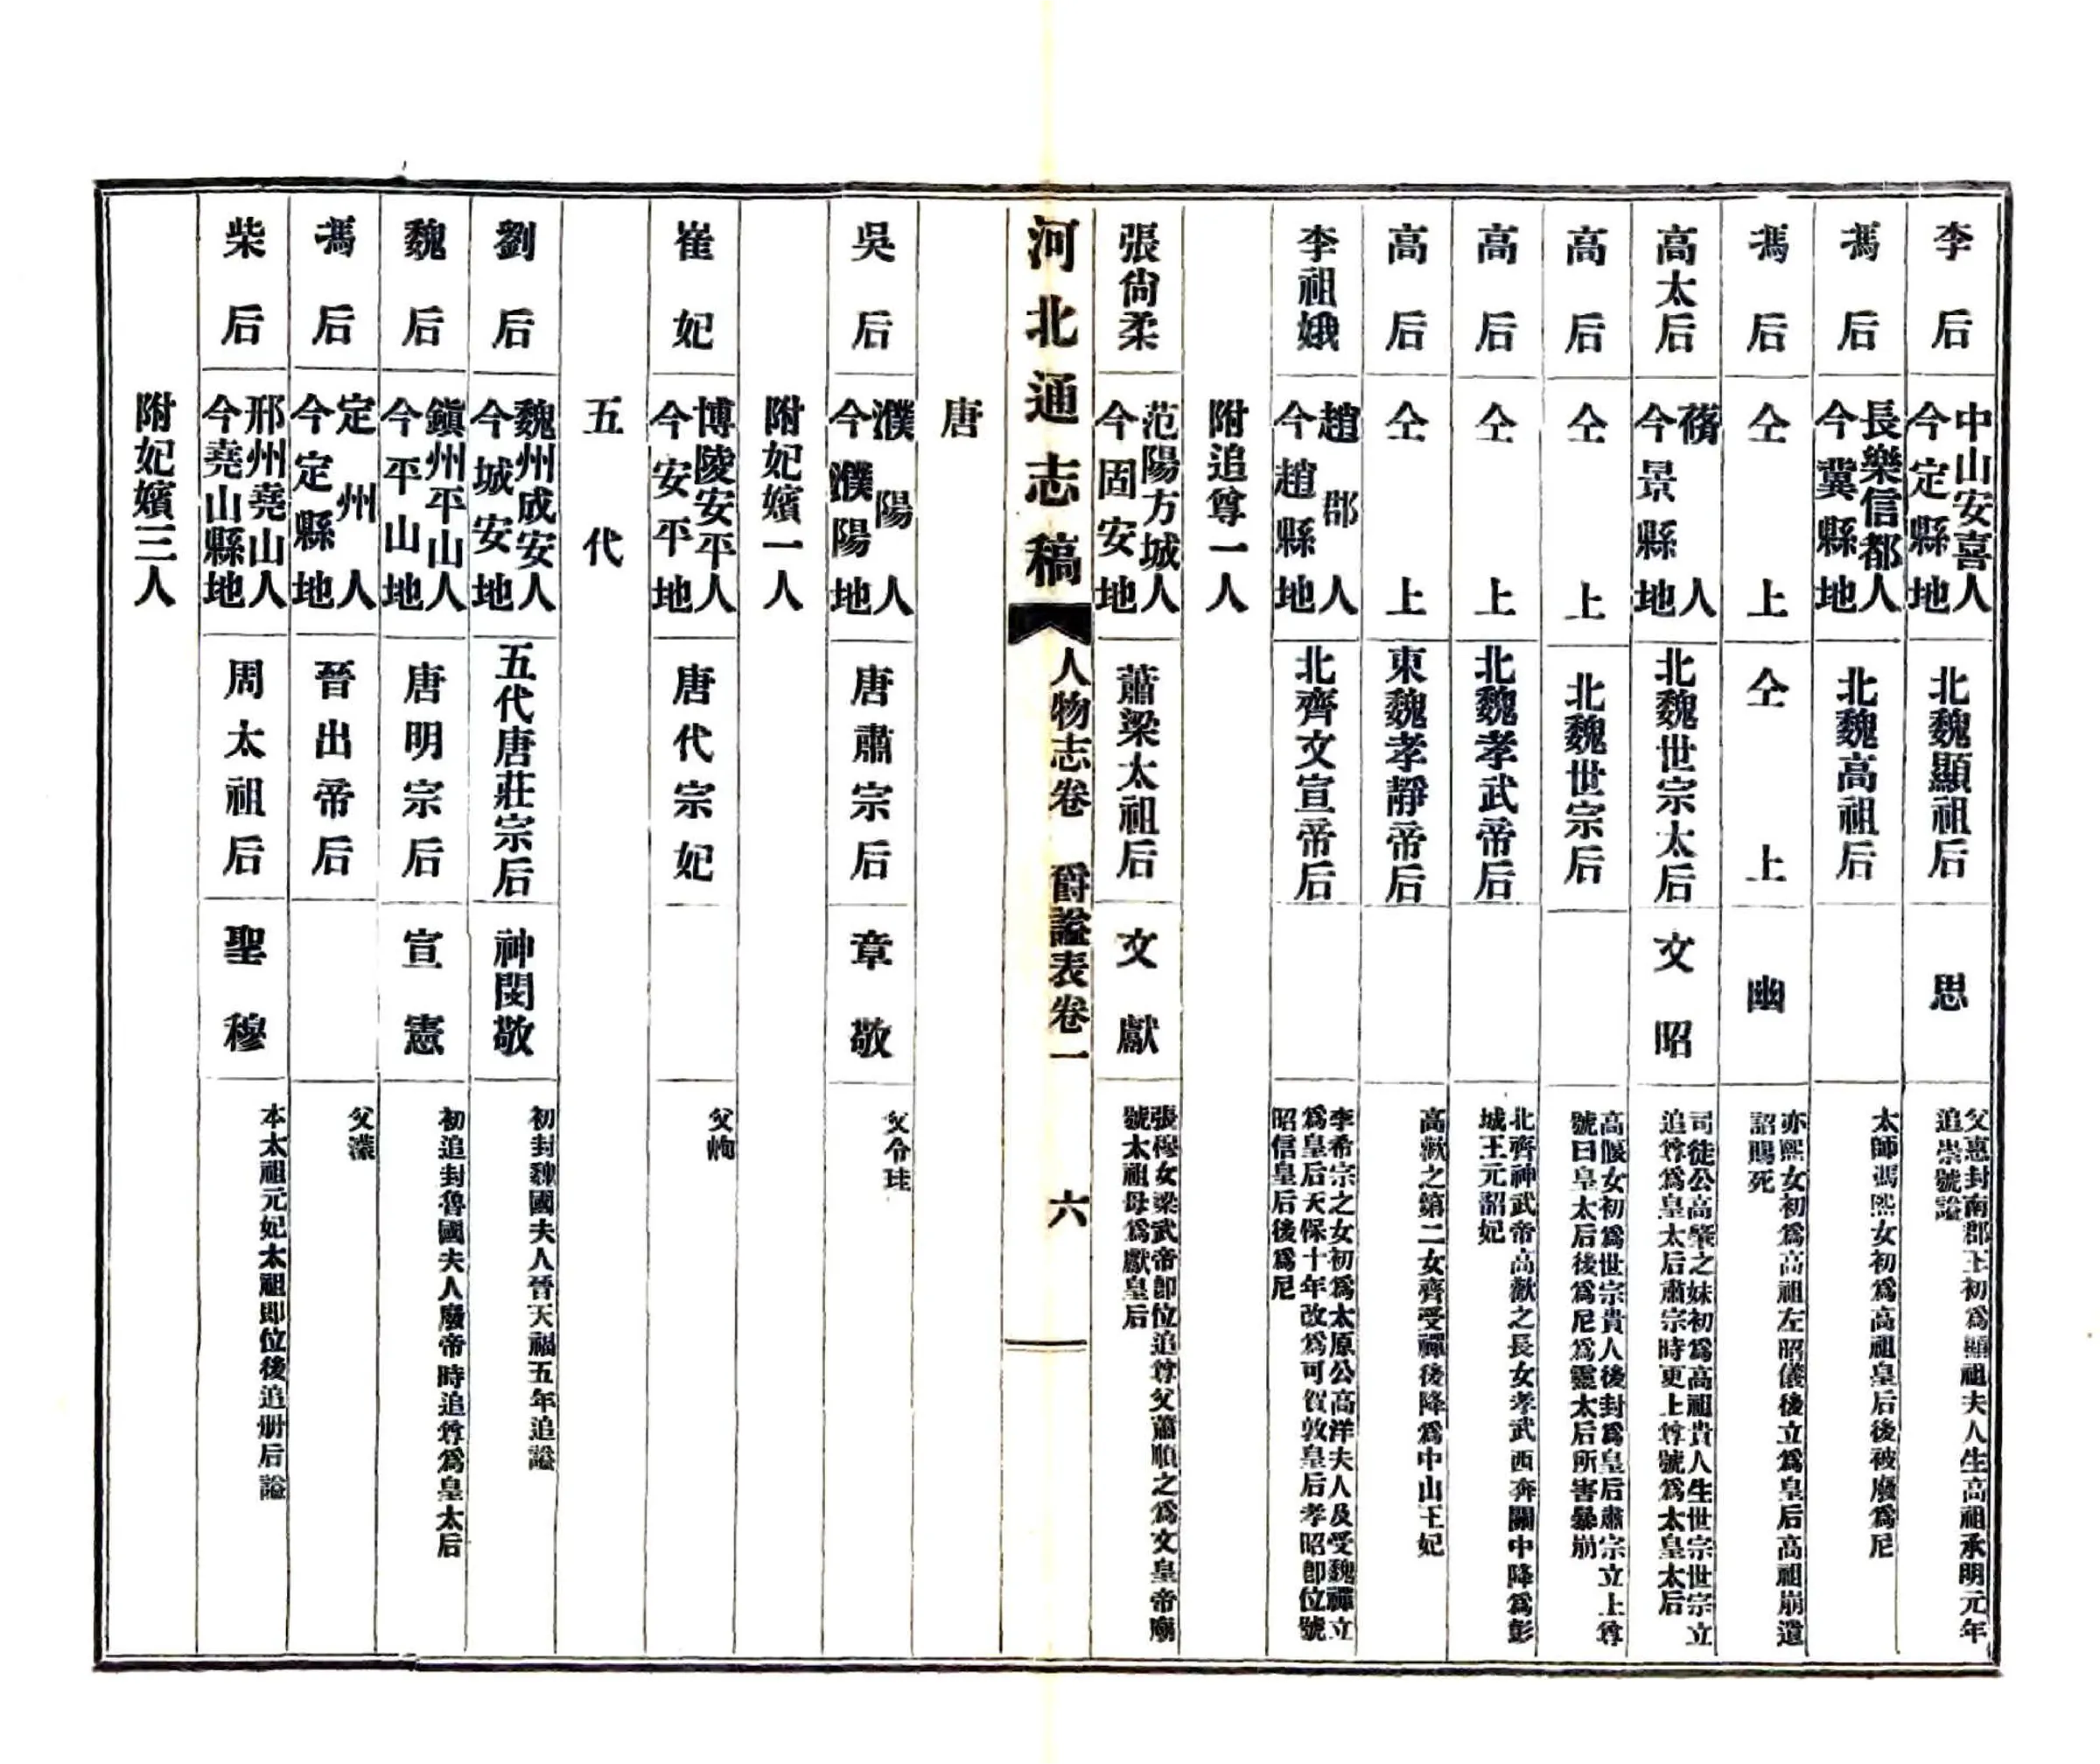 李后 中山安喜人今定縣地 北魏顯祖后 思 父惠封南郡王初爲顯祖夫人生高祖承明元年追崇號謚
馮后 長樂信都人今冀縣地 北魏高祖后 太師馮熙女初爲高祖皇后後被廢爲尼
馮后 仝上 仝上 幽 亦熙女初爲高祖左昭儀後立爲皇后高祖崩遺詔賜死
高太后 蓨人今景縣地 北魏世宗太后 文昭 司徒公高肇之妹初爲高祖貴人生世宗世宗立追尊爲皇太后肅宗時更上尊號爲太皇太后
高后 仝上 北魏世宗后 高偃女初爲世宗貴人後封爲皇后肅宗立上尊號曰皇太后後爲尼爲靈太后所害暴崩
高后 仝上 北魏孝武帝后 北齊神武帝高歡之長女孝武西奔關中降爲彭城王元韶妃
高后 仝上 東魏孝靜帝后 高歡之第二女齊受禪後降爲中山王妃
李祖娥 趙郡人今趙縣地 北齊文宣帝后 李希宗之女初爲太原公高洋夫人及受魏禪立爲皇后天保十年改爲可賀敦皇后孝昭卽位號昭信皇后後爲尼
附追尊一人
張尙柔 范陽方城人今固安地 蕭梁太祖后 文獻 張穆女梁武帝卽位追尊父蕭順之爲文皇帝廟號太祖母爲獻皇后
河北通志稿 人物志卷 爵謚表卷一 六
唐
吳后 濮陽人今濮陽地 唐肅宗后 章敬 父令珪
附妃嬪一人
崔妃 博陵安平人今安平地 唐代宗妃 父峋
五代
劉后 魏州成安人今城安地 五代唐莊宗后 神閔敬 初封魏國夫人晉天福五年追謚
魏后 鎭州平山人今平山地 唐明宗后 宣憲 初追封魯國夫人廢帝時追尊爲皇太后
馮后 定州人今定縣地 晉出帝后 父濛
柴后 邢州堯山人今堯山縣地 周太祖后 聖穆 本太祖元妃太祖即位後追册后謚
附妃嬪三人